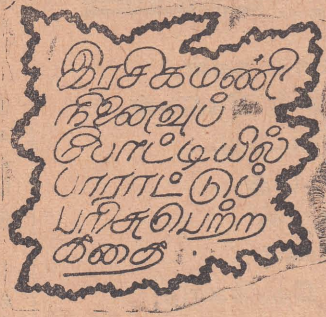 இரசிகமணி
நினைவுப்
போட்டியில்
பாராட்டுப்
பரிசுபெற்ற
கதை